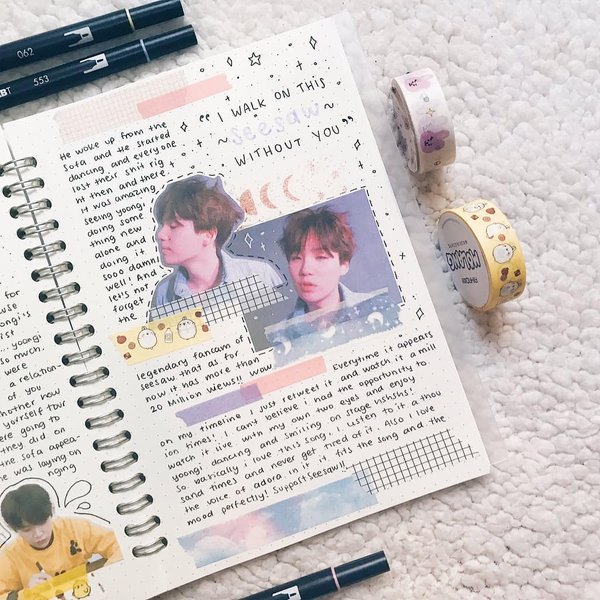 062
553
BT
"I WALK ON THIS
~seesaw~
WITHOUT YOU"
He woke up from the
sofa and he started
dancing and everyone
lost their shit rig
ht then and there.
It was amazing
seeing yoongi
doing some
thing new
alone and
doing it
sooo damn
well! And
let's not
forget
the
legendary fancam of
seesaw that as for
now it has more than
20 Million wiews!! wow
Everytime it appears
on my timeline I just retweet it and watch it a mill
ion times! I can't believe i had the opportunity to
watch it live with my own two eyes and enjoy
yoongi dancing and smiling on stage hshshs!
So basically i love this song, I listen to it a thou
sand times and never get tired of it. Also I love
the voice of adora in it it fits the song and the
mood perfectly! Support Seesaw!!
for
yoongi
so much.
were
a relation-
of you
another how
yourself tour
were going to
they did on
the sofa appea-
he was laying on
nging